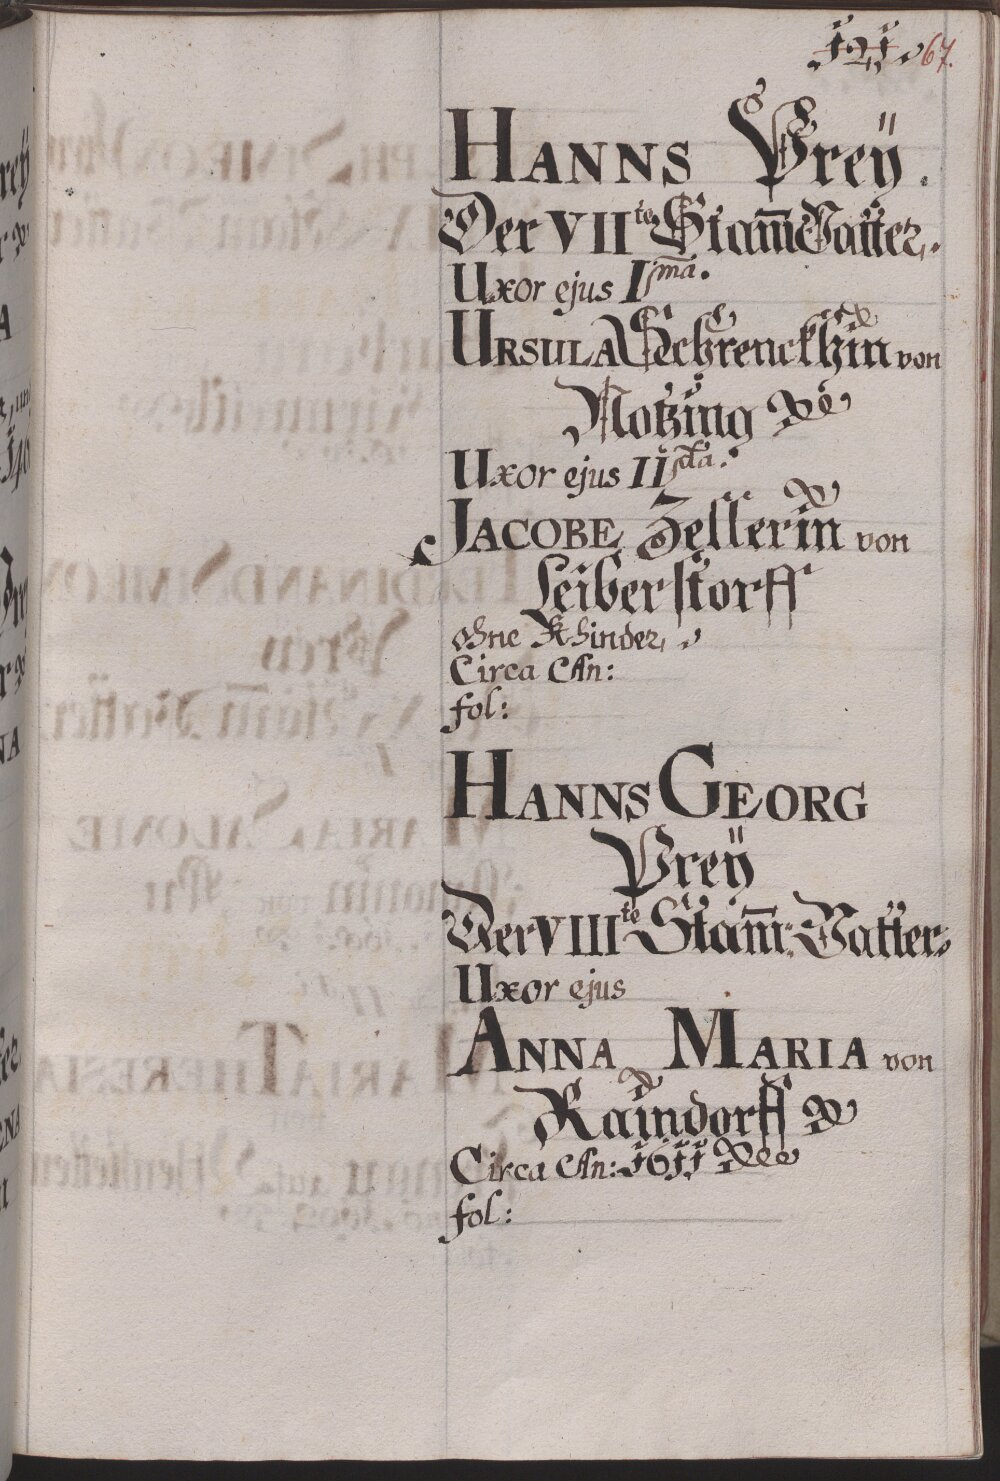 121. 67.
HANNS Preÿ.
Der VII.te StammVatter.
Uxor ejus I.ma.
URSULA Schrenckhin von
Notzing &c
Uxor ejus II.da.
JACOBE Zellerin von
Leiberstorff
ohne Khinder,
Circa An:
fol:
HANNS GEORG
Preÿ
Der VIII.te Stamm: Vatter
Uxor ejus
ANNA MARIA von
Raindorff &c
Circa An: 1611 &c
fol: